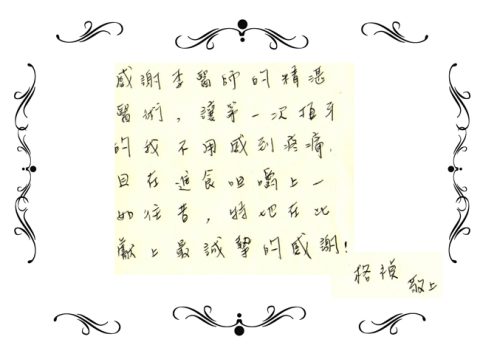 感謝李醫師的精湛
醫術，讓第一次植牙
的我不用感到疼痛，
且在進食咀嚼上一
如往昔，特地在此
獻上最誠摯的感謝！
格禎
敬上